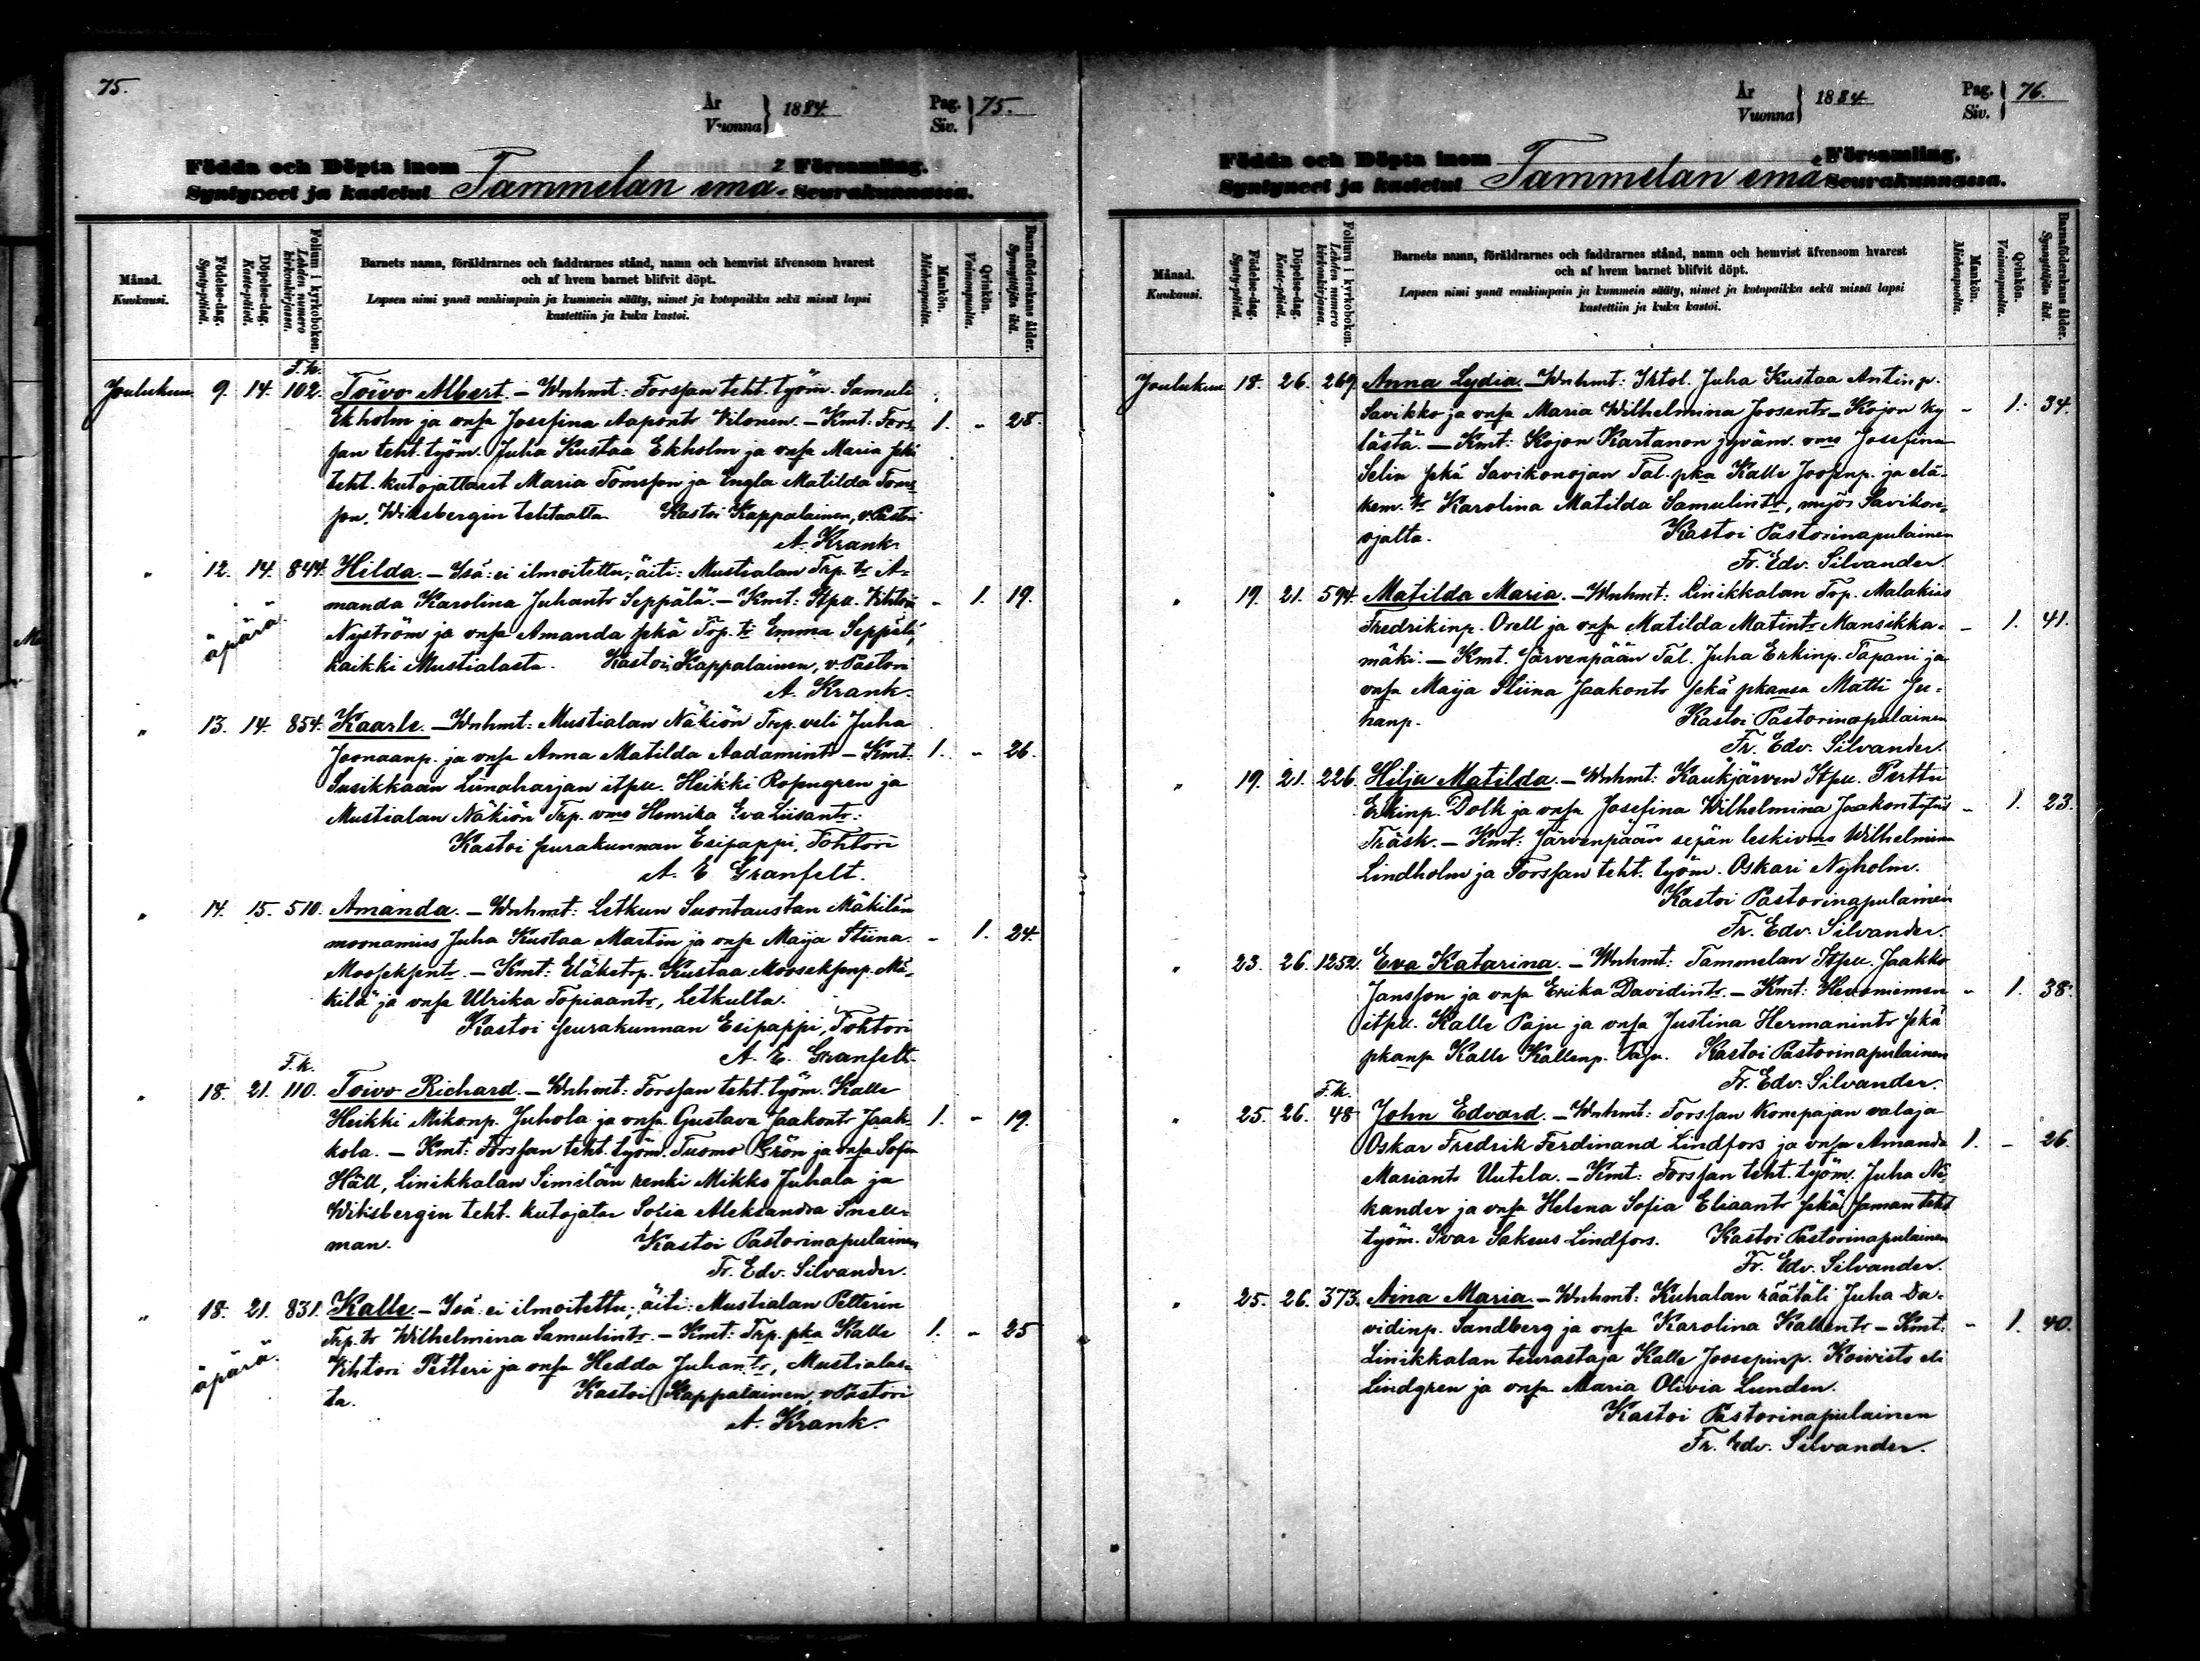 75.
År
Vuonna } 1884.
Pag.
Siv. } 75.
Födda och Döpta inom Församling.
Syntyneet ja kastetut Tammelan emä- Seurakunnassa.
Månad.
Kuukausi.
Födelse-dag.
Synty-päivä.
Döpelse-dag.
Kaste-päivä.
Folium i kyrkoboken.
Lehden numero kirkonkirjassa.
Barnets namn, föräldrarnes och faddrarnes stånd, namn och hemvist äfvensom hvarest
och af hvem barnet blifvit döpt.
Lapsen nimi ynnä vanhimpain ja kummein sääty, nimet ja kotopaikka sekä missä lapsi
kastettiin ja kuka kastoi.
Mankön.
Miehenpuolia.
Qvinkön.
Vaimonpuolia.
Barnaföderskans ålder.
Synnyttäjän ikä.
F.k.
Joulukuu 9. 14. 102. Toivo Albert. – Wnhmt: Forssan teht. työm. Samuli
Ekholm ja vnsa Josefina Aapontr Vilonen. – Kmt: Fors- 1. „ 28.
san teht. työm. Juha Kustaa Ekholm ja vnsa Maria skä
teht. kutojattaret Maria Tomsson ja Engla Matilda Toms-
son, Wiksbergin tehtaalta. Kastoi Kappalainen, v. Pastori
A. Krank.
„ 12. 14. 844. Hilda. – Isä: ei ilmoitettu; äiti: Mustialan Trp. tr A-
manda Karolina Juhantr Seppälä. – Kmt: Itpu. Vihtori „ 1. 19.
äpärä Nyström ja vnsa Amanda skä Trp. tr Emma Seppälä,
kaikki Mustialasta. Kastoi Kappalainen, v. Pastori
A. Krank.
„ 13. 14. 854. Kaarle. – Wnhmt: Mustialan Näkiön Trp. veli Juha
Joonaanp. ja vnsa Anna Matilda Aadamintr – Kmt. 1. „ 26.
Susikkaan Liinaharjan itpu. Heikki Ropngren ja
Mustialan Näkiön Trp. vmo Henrika Eva Liisantr.
Kastoi seurakunnan Esipappi, Tohtori
A. E. Granfelt.
„ 14. 15. 510. Amanda. – Wnhmt: Letkun Suontaustan Mäkilän
moonamies Juha Kustaa Martin ja vnsa Maija Stiina „ 1. 24.
Mooseksentr. – Kmt: Eläketrp. Kustaa Mooseksenp. Mä-
kilä ja vnsa Ulrika Topiaantr, Letkulta.
Kastoi seurakunnan Esipappi, Tohtori
A. E. Granfelt.
F.k.
„ 18. 21. 110. Toivo Richard. – Wnhmt: Forssan teht. työm. Kalle
Heikki Mikonp. Juhola ja vnsa Gustava Jaakontr Jaak- 1. „ 19.
kola. – Kmt: Forssan teht. työm. Tuomo Grön ja vnsa Sofia
Häll, Linikkalan Similän renki Mikko Juhala ja
Wiksbergin teht. kutojatar Sofia Aleksandra Snell-
man. Kastoi Pastorinapulainen
Fr. Edv. Silvander.
„ 18. 21. 831. Kalle. – Isä: ei ilmoitettu; äiti: Mustialan Petterin
Trp. tr Wilhelmina Samulintr. – Kmt: Trp. pka Kalle 1. „ 25
äpärä. Vihtori Petteri ja vnsa Hedda Juhantr, Mustialas-
ta. Kastoi Kappalainen, v. Pastori
A. Krank.
År
Vuonna } 1884.
Pag.
Siv. } 76.
Födda och Döpta inom Församling.
Syntyneet ja kastetut Tammelan emä- Seurakunnassa.
Månad.
Kuukausi.
Födelse-dag.
Synty-päivä.
Döpelse-dag.
Kaste-päivä.
Folium i kyrkoboken.
Lehden numero kirkonkirjassa.
Barnets namn, föräldrarnes och faddrarnes stånd, namn och hemvist äfvensom hvarest
och af hvem barnet blifvit döpt.
Lapsen nimi ynnä vanhimpain ja kummein sääty, nimet ja kotopaikka sekä missä lapsi
kastettiin ja kuka kastoi.
Mankön.
Miehenpuolia.
Qvinkön.
Vaimonpuolia.
Barnaföderskans ålder.
Synnyttäjän ikä.
Joulukuu 18. 26. 269. Anna Lydia. – Wnhmt: Irtol. Juha Kustaa Antinp.
Savikko ja vnsa Maria Wilhelmina Joosentr – Kojon ky- „ 1. 34.
lästä. – Kmt: Kojon Kartanon jyväm. vmo Josefina
Selin skä Savikonojan Tal. pka Kalle Joosenp. ja elä-
kem. tr Karolina Matilda Samulintr, myös Savikon-
ojalta. Kastoi Pastorinapulainen
Fr. Edv. Silvander.
„ 19. 21. 594. Matilda Maria. – Wnhmt: Linikkalan Trp. Malakias
Fredrikinp. Orell ja vnsa Matilda Matintr Mansikka- – 1. 41.
mäki. – Kmt. Järvenpään Tal. Juha Erkinp. Tapani ja
vnsa Maija Stiina Jaakontr skä pkansa Matti Ju-
hanp. Kastoi Pastorinapulainen
Fr. Edv. Silvander.
„ 19. 21. 226. Hilja Matilda. – Wnhmt: Kaukjärven Itpu. Perttu
Erkinp. Dolk ja vnsa Josefina Wilhelmina Jaakontytär – 1. 23.
Träsk. – Kmt: Järvenpään sepän leskivmo Wilhelmina
Lindholm ja Forssan teht. työm. Oskari Nyholm.
Kastoi Pastorinapulainen
Fr. Edv. Silvander.
„ 23. 26. 1252. Eva Katarina. – Wnhmt: Tammelan Itpu. Jaakko
Jansson ja vnsa Erika Davidintr. – Kmt: Hevoniemen „ 1. 38.
itpu. Kalle Paju ja vnsa Justina Hermanintr skä
pkansa Kalle Kallenp. Paju. Kastoi Pastorinapulainen
Fr. Edv. Silvander.
F.k.
„ 25. 26. 48 John Edvard. – Wnhmt: Forssan Konepajan valaja
Oskar Fredrik Ferdinand Lindfors ja vnsa Amanda 1. – 26.
Mariantr Uutela. – Kmt: Forssan teht. työm. Juha Ni-
kander ja vnsa Helena Sofia Eliaantr skä saman teht
työm. Ivar Sakeus Lindfors. Kastoi Pastorinapulainen
Fr. Edv. Silvander.
„ 25. 26. 373. Aina Maria. – Wnhmt: Kuhalan räätäli Juha Da-
vidinp. Sandberg ja vnsa Karolina Kallentr – Kmt: – 1. 40.
Linikkalan teurastaja Kalle Joosepinp. Koivisto eli
Lindgren ja vnsa Maria Olivia Lunden.
Kastoi Pastorinapulainen
Fr. Edv. Silvander.